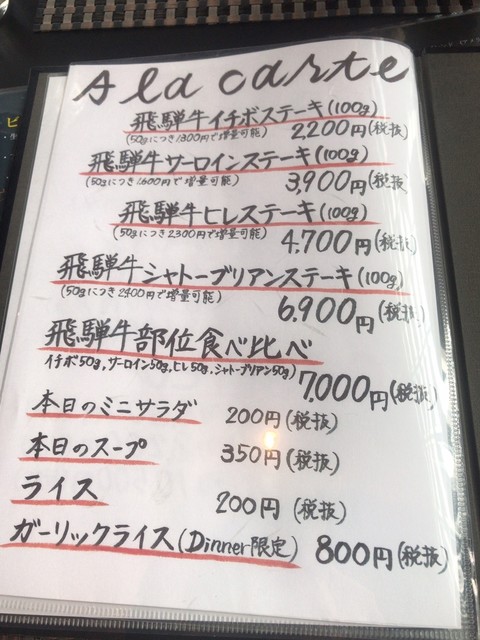 A la carte
飛騨牛イチボステーキ(100g)
(50gにつき1300円で増量可能) 2,200円(税抜)
飛騨牛サーロインステーキ(100g)
(50gにつき1600円で増量可能) 3,900円(税抜)
飛騨牛ヒレステーキ(100g)
(50gにつき2300円で増量可能) 4,700円(税抜)
飛騨牛シャトーブリアンステーキ(100g)
(50gにつき2400円で増量可能) 6,900円(税抜)
飛騨牛部位食べ比べ
(イチボ50g,サーロイン50g,ヒレ50g,シャトーブリアン50g) 7,000円(税抜)
本日のミニサラダ 200円(税抜)
本日のスープ 350円(税抜)
ライス 200円(税抜)
ガーリックライス(Dinner限定) 800円(税抜)